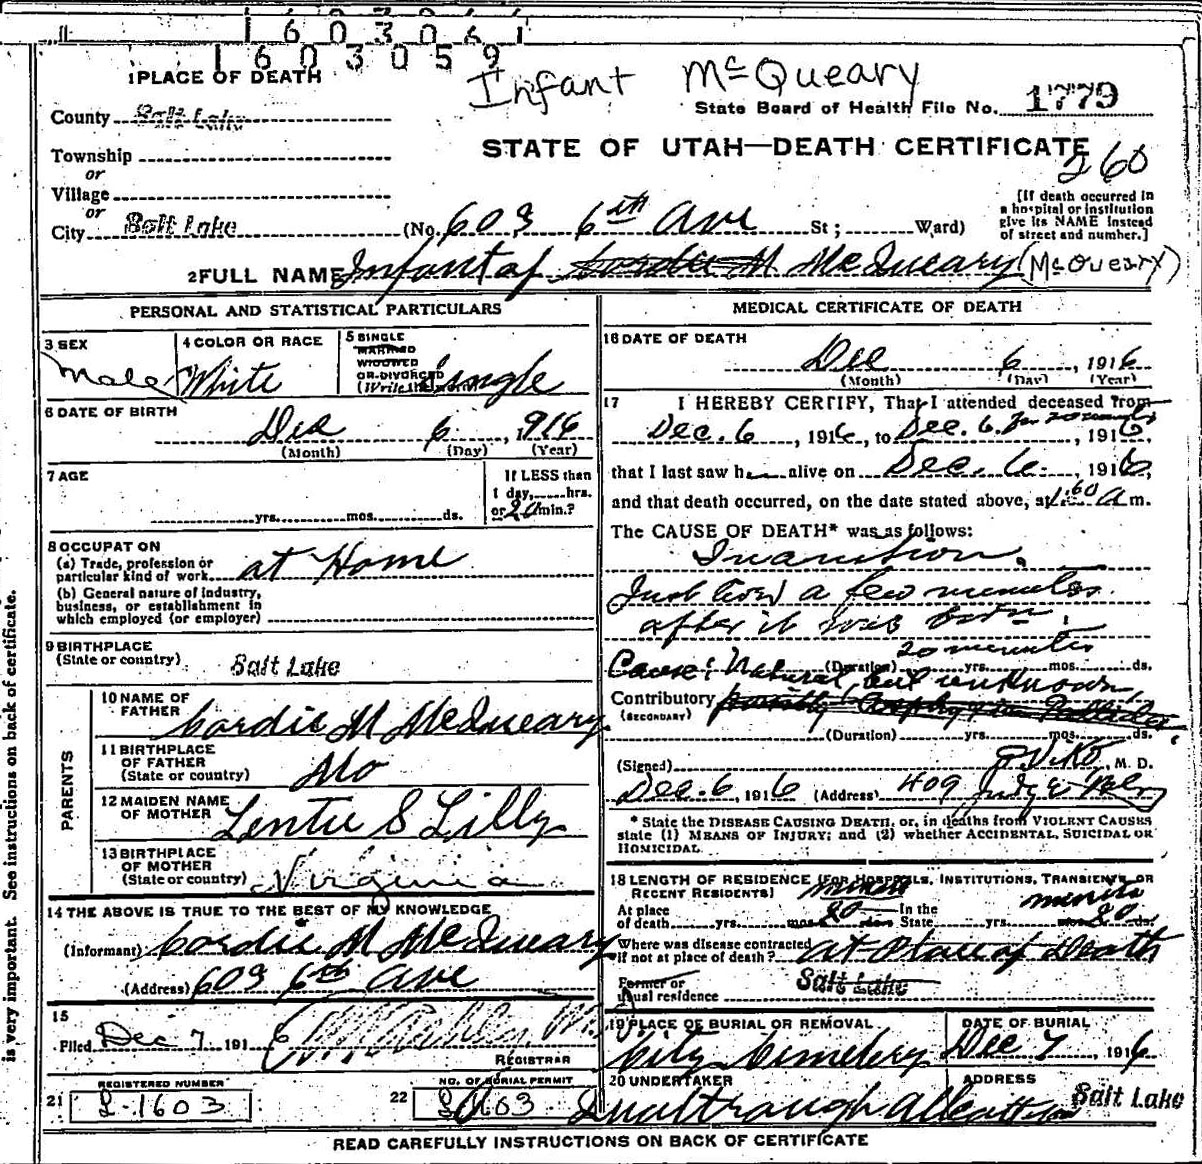 1603061
1603059
Infant McQueary
1 PLACE OF DEATH
State Board of Health File No. 1779
County Salt Lake
STATE OF UTAH—DEATH CERTIFICATE
Township
260
or
Village
or
City Salt Lake (No. 603 6th Ave St; Ward)
[If death occurred in
a hospital or institution
give its NAME instead
of street and number.]
2 FULL NAME Infant of Cordie M McQueary (McQueary)
PERSONAL AND STATISTICAL PARTICULARS
3 SEX
Male
4 COLOR OR RACE
White
5 SINGLE
MARRIED
WIDOWED
OR DIVORCED
(Write the word) Single
6 DATE OF BIRTH
Dec 6, 1916
(Month) (Day) (Year)
7 AGE
yrs. mos. ds.
If LESS than
1 day, hrs.
or 20 min.?
8 OCCUPATION
(a) Trade, profession or
particular kind of work at Home
(b) General nature of industry,
business, or establishment in
which employed (or employer)
9 BIRTHPLACE
(State or country) Salt Lake
PARENTS
10 NAME OF
FATHER Cordie M McQueary
11 BIRTHPLACE
OF FATHER
(State or country) Mo
12 MAIDEN NAME
OF MOTHER Lentie S Lilly
13 BIRTHPLACE
OF MOTHER
(State or country) Virginia
14 THE ABOVE IS TRUE TO THE BEST OF MY KNOWLEDGE
(Informant) Cordie M McQueary
(Address) 603 6th Ave
15
Filed Dec 7 1916
REGISTRAR
REGISTERED NUMBER
21 L-1603
NO. OF BURIAL PERMIT
22 1603
MEDICAL CERTIFICATE OF DEATH
16 DATE OF DEATH
Dec 6, 1916
(Month) (Day) (Year)
17 I HEREBY CERTIFY, That I attended deceased from
Dec. 6, 1916, to Dec. 6. for 20 minutes, 1916,
that I last saw h alive on Dec. 6, 1916,
and that death occurred, on the date stated above, at a m.
The CAUSE OF DEATH* was as follows:
Inanition.
Just lived a few minutes
after it was born.
20 minutes
(Duration) yrs. mos. ds.
Cause: Natural but unknown
Contributory
(SECONDARY)
(Duration) yrs. mos. ds.
(Signed) Viko, M. D.
Dec. 6, 1916 (Address) 409 Judge Bldg
* State the DISEASE CAUSING DEATH, or, in deaths from VIOLENT CAUSES
state (1) MEANS OF INJURY; and (2) whether ACCIDENTAL, SUICIDAL OR
HOMICIDAL.
18 LENGTH OF RESIDENCE (FOR HOSPITALS, INSTITUTIONS, TRANSIENTS, OR
RECENT RESIDENTS)
minutes minutes
At place In the
of death yrs. mos. 20 ds. State yrs. mos. 20 ds.
Where was disease contracted
if not at place of death? at Place of Death
Former or
usual residence Salt Lake
19 PLACE OF BURIAL OR REMOVAL
City Cemetery
DATE OF BURIAL
Dec 7, 1916
20 UNDERTAKER
ADDRESS
Salt Lake
READ CAREFULLY INSTRUCTIONS ON BACK OF CERTIFICATE
is very important. See instructions on back of certificate.